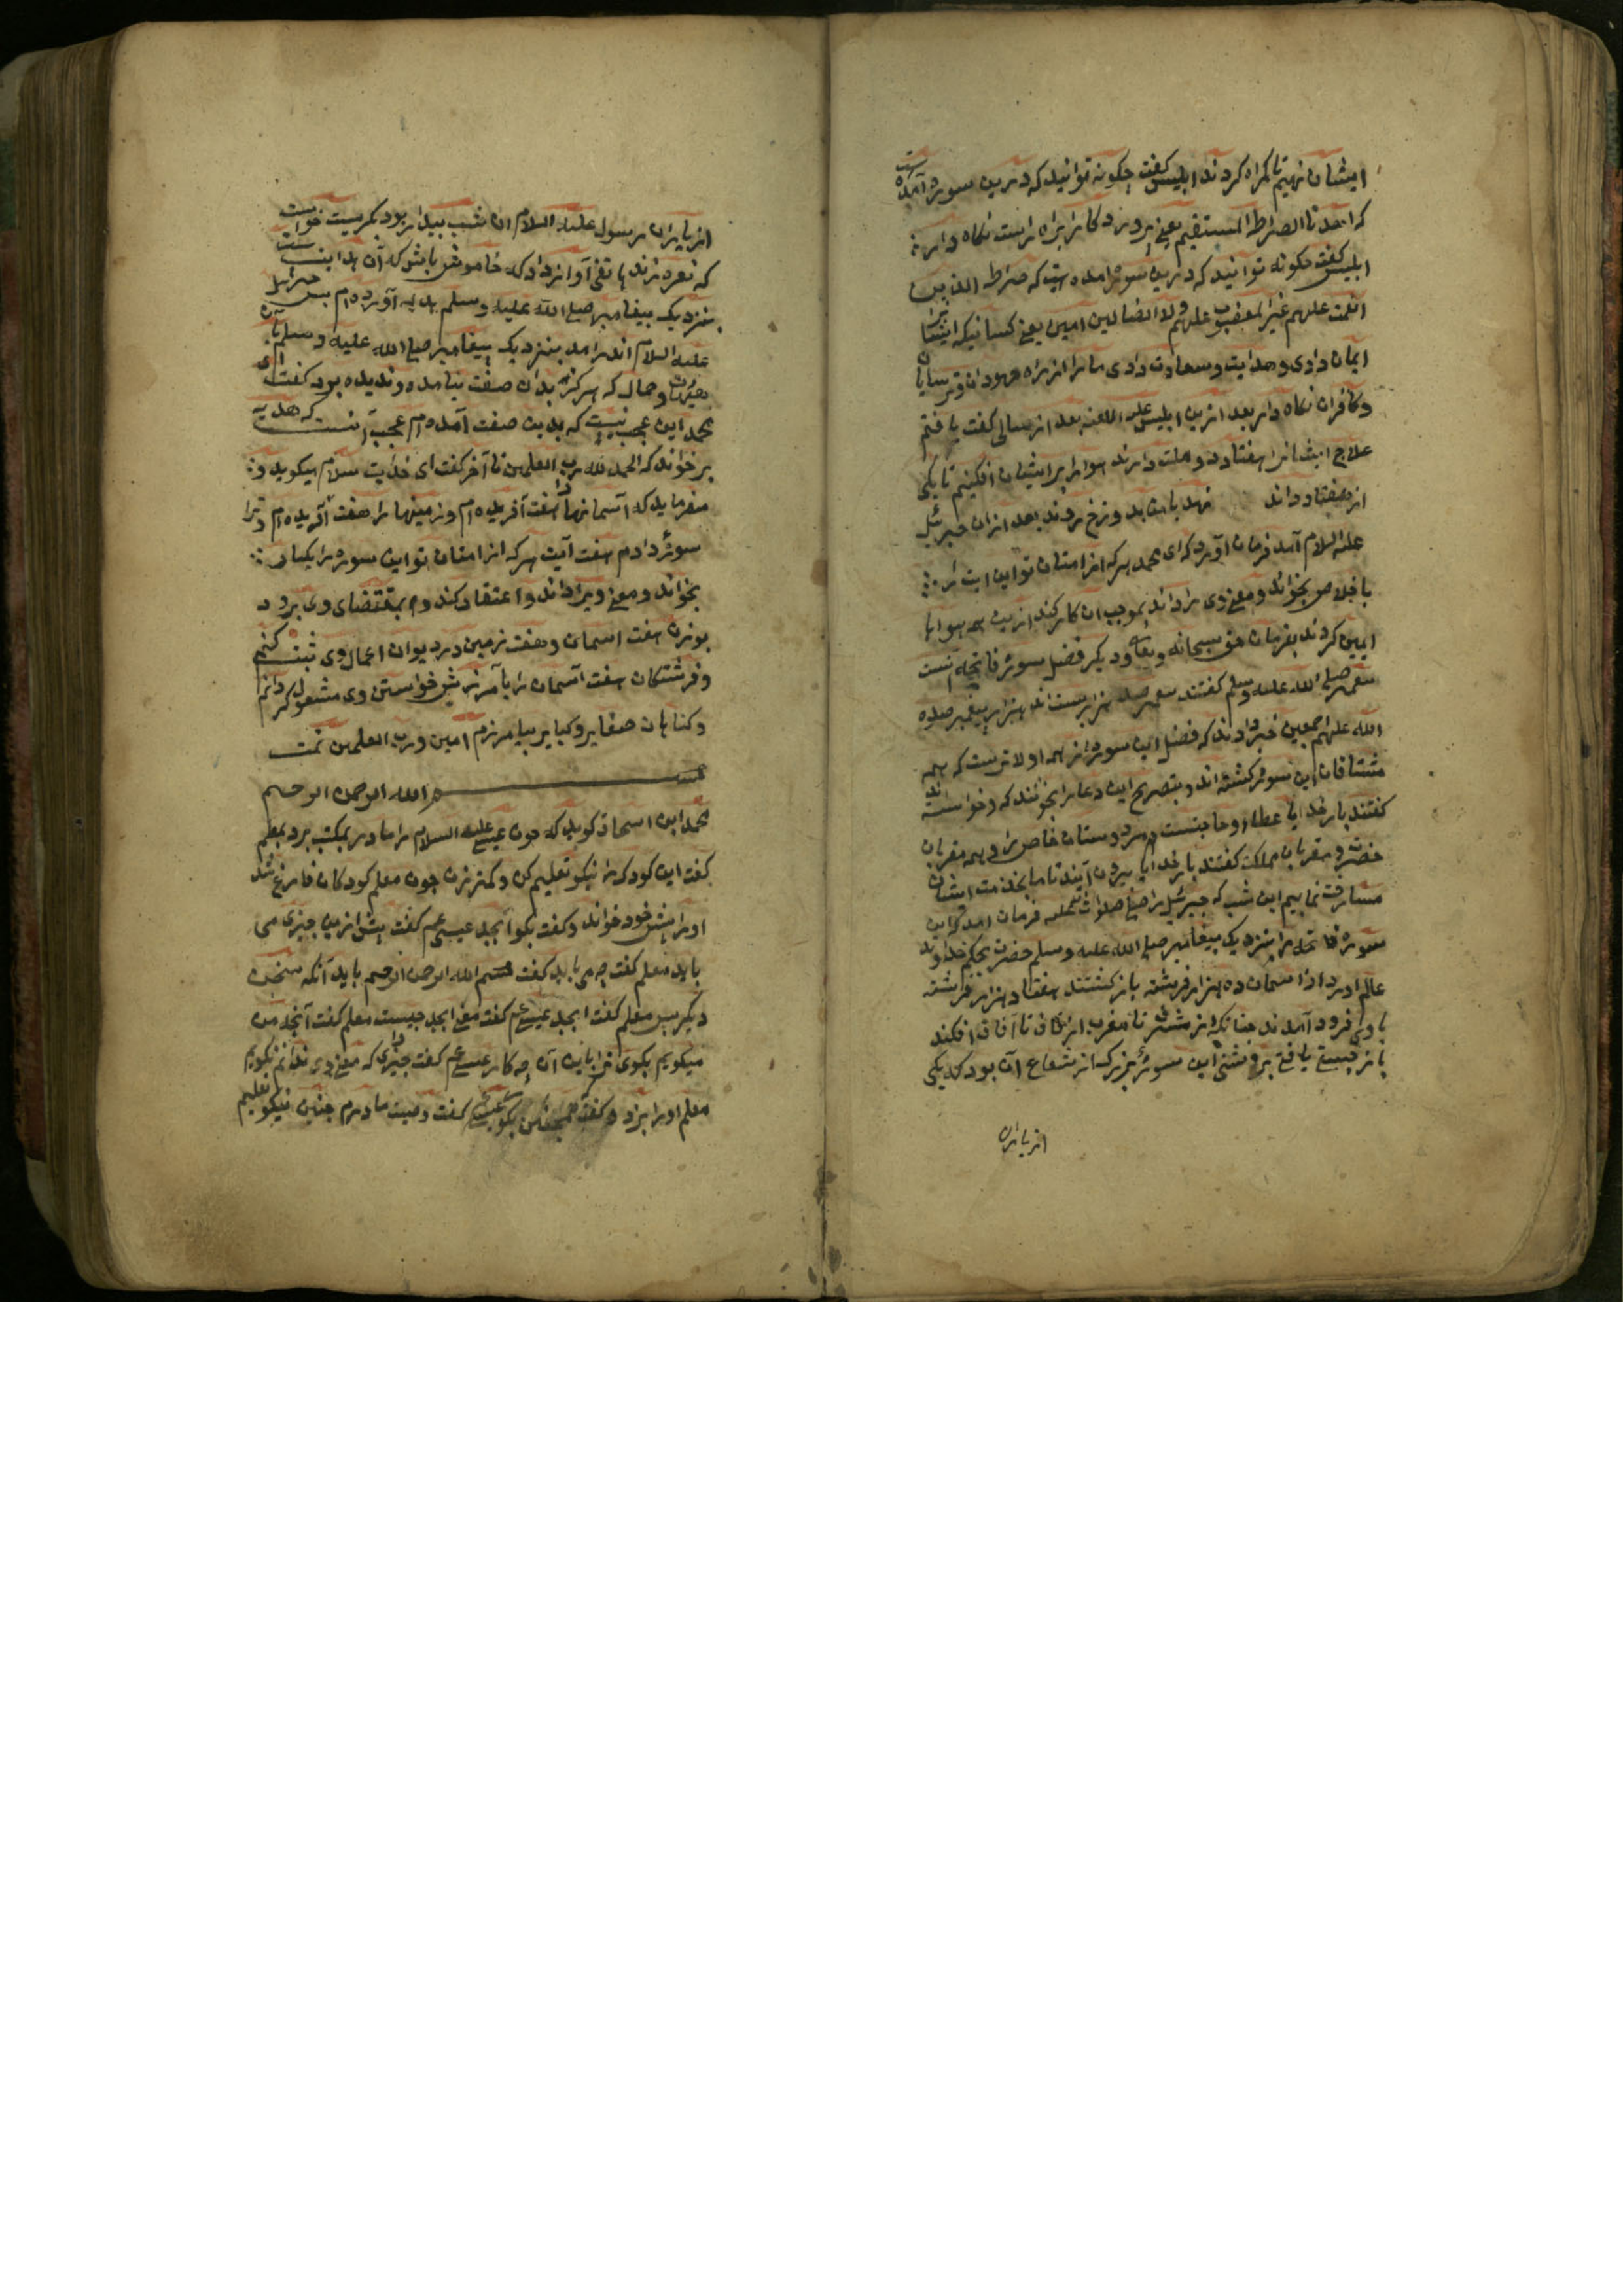 ایشان نهیم تا کمراه کردند ابلیس کفت چکونه توانید که درین سوره آمده است
که اهدنا الصراط المستقیم یعنی براه راست نکاه دار
ابلیس کفت چکونه توانید که درین سوره امده است که صراط الذین
انعمت علیهم غیر المغضوب علیهم ولا الضالین امین یعنی کسانیکه ایشانرا
ایمان دادی وهدایت وسعادت دادی مارا از راه جهودان وترسایان
وکافران نکاه دار بعد ازین ابلیس علیه اللعنه بعد از سالی کفت یافتم
علاج ایشانرا هفتاد دو ملت دارند هوارا بر ایشان افکنیم تا یکی
از هفتاد داند دوزخ روند بعد ازان جبرئیل
علیه السلام آمد فرمان آورد که ای محمد هرکه از امتان تو این ایت را
باخلاص بخواند ومعنی وی را داند بموجب ان کار کند ازین همه هواها
ایمن کردند بفرمان حق سبحانه وتعالی ودیکر فضل سوره فاتحه آنست
صلی الله علیه وسلم کفتند صد هزار بیست اند هزار پیغمبر صلوه
الله علیهم اجمعین خبر دادند که فضل این سوره از همه اولاتر است که همه
مشتاقان این سوره کشته اند وبتصریح این دعا را بخوانند که وخواسته اند
کفتند بار خدایا عطا دوستان خاص را وهمه مقربان
حضرت ومقربان مملکت کفتند بار خدایا بیرون آیند تا ما بخدمت ایشان
مسارفت نماییم این شب که جبرئیل را صلوات علیه فرمان امد که این
سوره فاتحه را بنزدیک پیغامبر صلی الله علیه وسلم حضرت بحکم خداوند
عالم اورد از اسمان ده هزار فرشته باز کشتند هفتاد هزار فرشته
با وی فرود آمدند چنانکه از مشرق تا مغرب از تا آفاق افکند
باز یافتی بروشنی این سوره بزرک از شعاع آن بود که یکی
از یاران
از یاران رسول علیه السلام ان شب بیدار بود بکریست خواست
که نعره زند هاتفی آواز داد که خاموش باش که آن هدایتست
بنزدیک پیغامبر صلی الله علیه وسلم هدیه آورده ام پس جبرئیل
علیه السلام اندرامد بنزدیک پیغامبر صلی الله علیه وسلم بآن
وجمال که هرکز بدان صفت نیامده وندیده بود کفت ای
محمد این عجب نیست که بدین صفت آمده ام عجب آنست که هدیه
بر خواند که الحمد لله رب العلمین تا آخر کفت ای خدایت سلام میکوید و
میفرماید که آسمانها را هفت آفریده ام وزمینها را هفت آفریده ام وترا
سوره دادم هفت آیت هرکه از امتان تو این سوره را یکبار
بخواند ومعنی ویرا داند واعتقاد کند وبمقتضای وی برود
بوزن هفت اسمان وهفت زمین در دیوان اعمال وی ثبت کنم
وفرشتکان هفت آسمان را بآمرزش خواستن وی مشغول کردانم
وکناهان صغایر وکبایر بیامرزم امین ورب العلمین تمت
بسم الله الرحمن الرحیم
محمد ابن اسحاق کوید که چون عیسی علیه السلام را مادر بمکتب برد بمعلم
کفت این کودک را نیکو تعلیم کن وکمتر زن چون معلم کودکان فارغ شد
اورا پیش خود خواند وکفت بکو ابجد عیسی عم کفت پیش ازین چیزی می
باید معلم کفت چه می باید کفت بسم الله الرحمن الرحیم باید آنکه سخن
دیکر پس معلم کفت ابجد عیسی عم کفت معنی ابجد چیست معلم کفت آنچه من
میکویم بکوی ترا باین آن چه کار عیسی عم کفت چیزی را که معنی وی ندانم نکویم
معلم اورا بزد وکفت بکو عیسی کفت وصیت مادرم چنین نیکو تعلیم